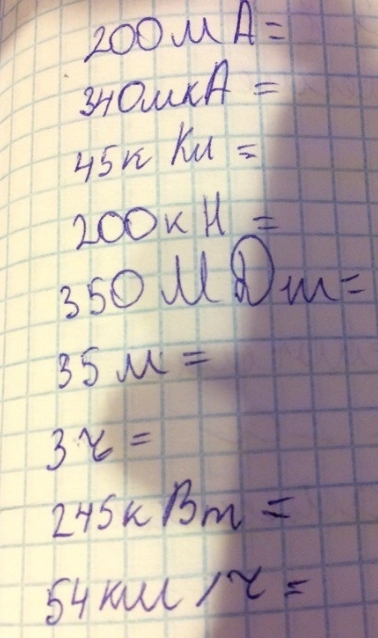 200мА=
340мкА=
45к Кл=
200кН=
350МДж=
35м=
3ч=
245кВт=
54км/ч=